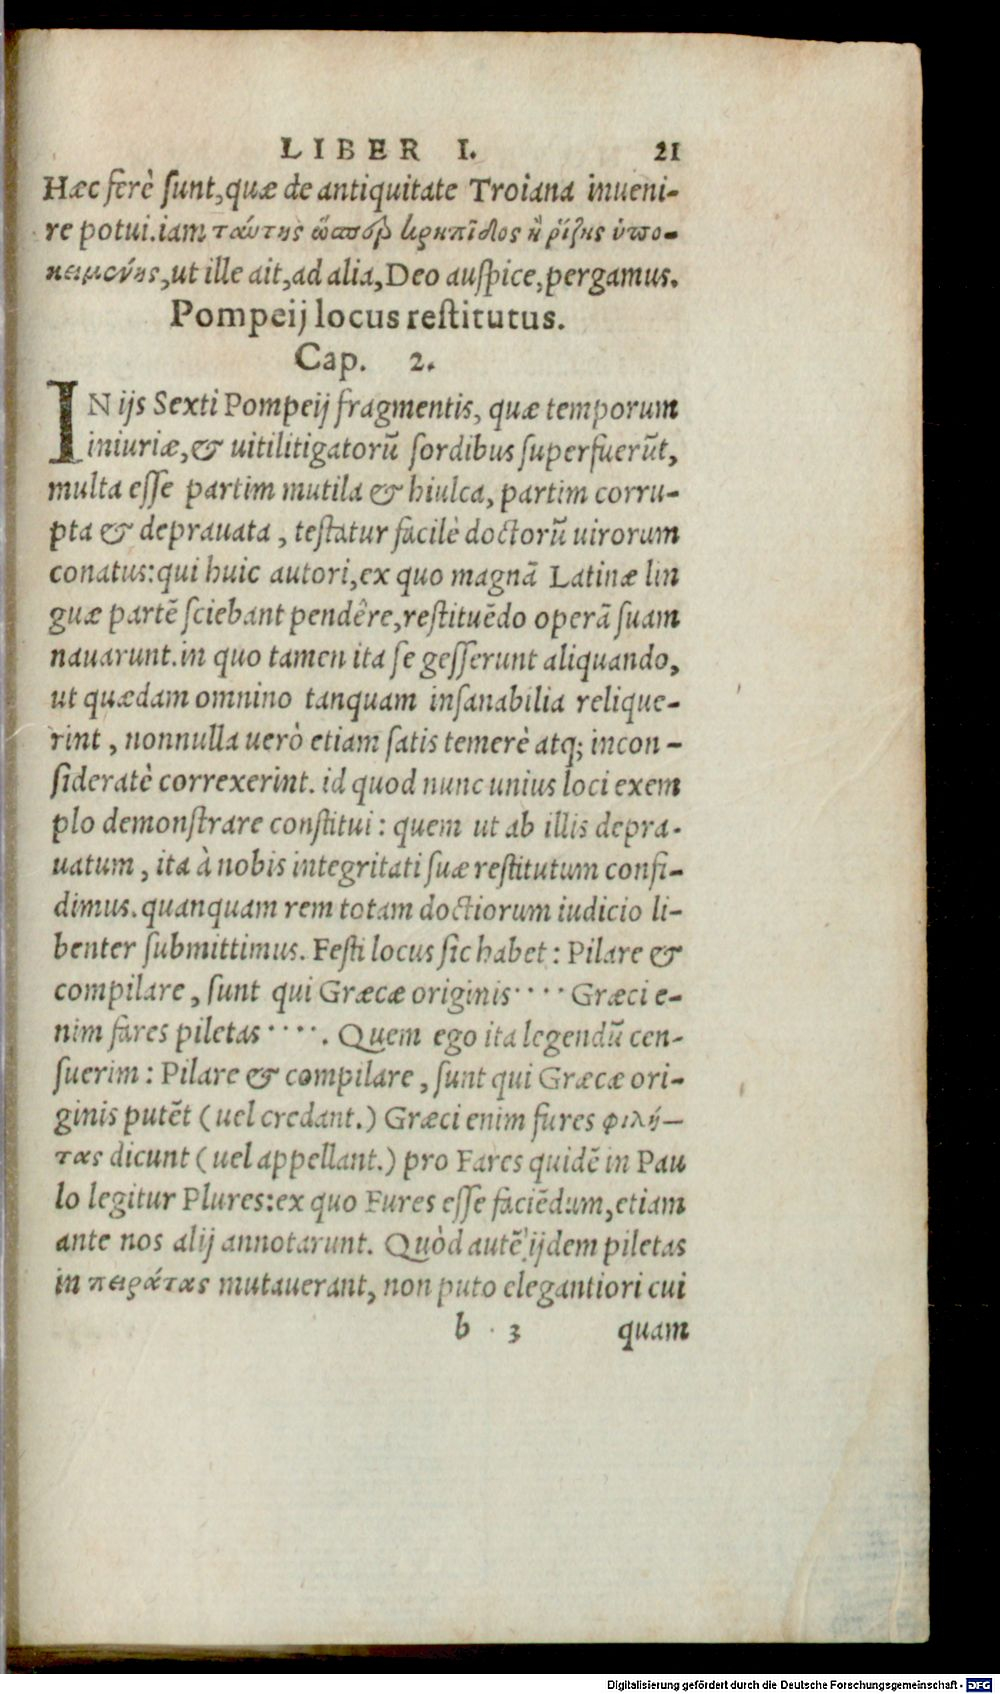 LIBER I. 21
Hæc ferè sunt, quæ de antiquitate Troiana inueni-
re potui. iam ταύτης ὥσπερ κρηπῖδος ἢ ῥίζης ὑπο-
κειμένης, ut ille ait, ad alia, Deo auspice, pergamus.
Pompeij locus restitutus.
Cap. 2.
IN ijs Sexti Pompeij fragmentis, quæ temporum
iniuriæ, & uitilitigatorũ sordibus superfuerũt,
multa esse partim mutila & hiulca, partim corru-
pta & deprauata, testatur facilè doctorũ uirorum
conatus: qui huic autori, ex quo magnã Latinæ lin
guæ partẽ sciebant pendêre, restituẽdo operã suam
nauarunt. in quo tamen ita se gesserunt aliquando,
ut quædam omnino tanquam insanabilia relique-
rint, nonnulla uerò etiam satis temerè atq; incon-
sideratè correxerint. id quod nunc unius loci exem
plo demonstrare constitui: quem ut ab illis depra-
uatum, ita à nobis integritati suæ restitutum confi-
dimus. quanquam rem totam doctiorum iudicio li-
benter submittimus. Festi locus sic habet: Pilare &
compilare, sunt qui Græcæ originis···· Græci e-
nim fares piletas····. Quem ego ita legendũ cen-
suerim: Pilare & compilare, sunt qui Græcæ ori-
ginis putẽt (uel credant.) Græci enim fures φιλή-
τας dicunt (uel appellant.) pro Fares quidẽ in Pau
lo legitur Plures: ex quo Fures esse faciẽdum, etiam
ante nos alij annotarunt. Quòd autẽ ijdem piletas
in πειράτας mutauerant, non puto elegantiori cui
b 3 quam
Digitalisierung gefördert durch die Deutsche Forschungsgemeinschaft - DFG